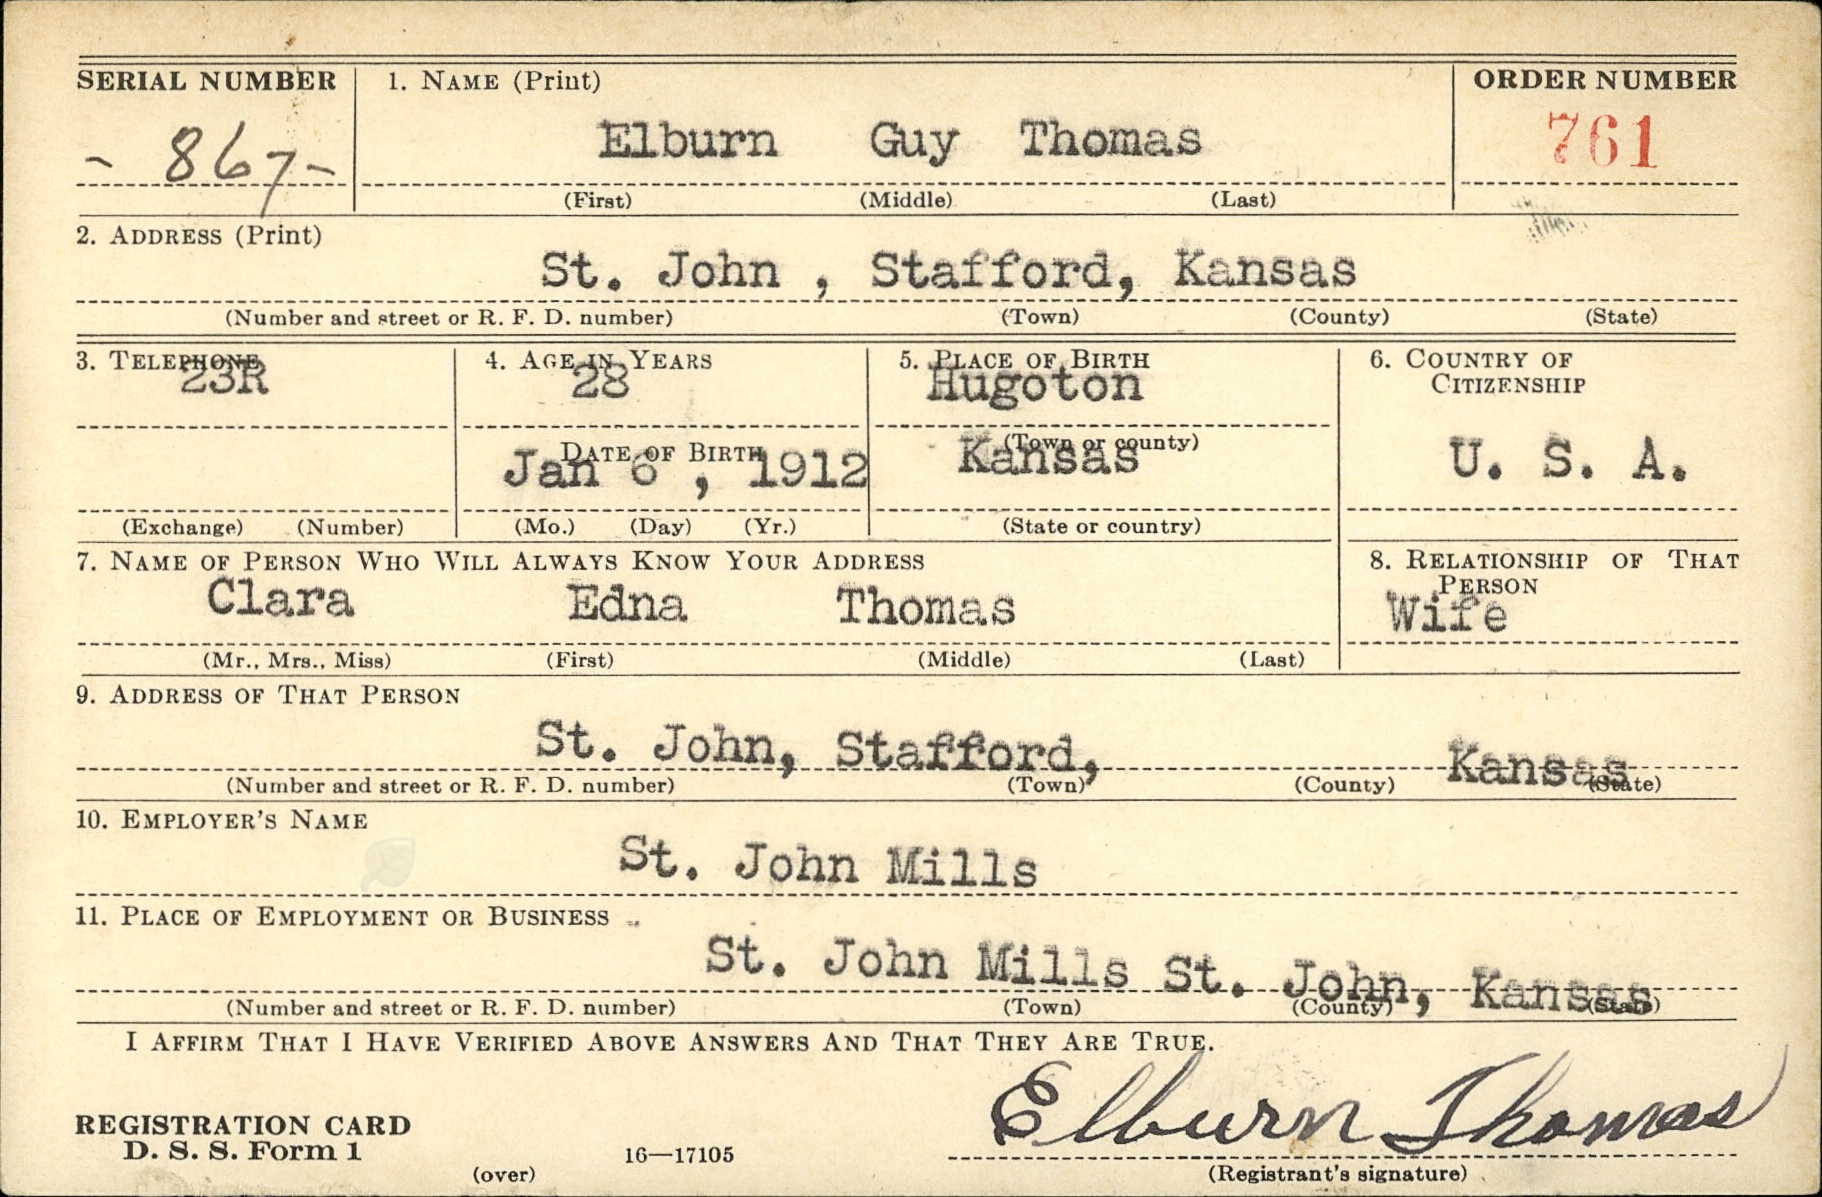 SERIAL NUMBER 1. NAME (Print) ORDER NUMBER
- 867 - Elburn Guy Thomas 761
(First) (Middle) (Last)
2. ADDRESS (Print)
St. John , Stafford, Kansas
(Number and street or R. F. D. number) (Town) (County) (State)
3. TELEPHONE 4. AGE IN YEARS 5. PLACE OF BIRTH 6. COUNTRY OF
CITIZENSHIP
23R 28 Hugoton
(Town or county)
DATE OF BIRTH
Jan 6 , 1912 Kansas U. S. A.
(Exchange) (Number) (Mo.) (Day) (Yr.) (State or country)
7. NAME OF PERSON WHO WILL ALWAYS KNOW YOUR ADDRESS 8. RELATIONSHIP OF THAT
PERSON
Clara Edna Thomas Wife
(Mr., Mrs., Miss) (First) (Middle) (Last)
9. ADDRESS OF THAT PERSON
St. John, Stafford, Kansas
(Number and street or R. F. D. number) (Town) (County) (State)
10. EMPLOYER'S NAME
St. John Mills
11. PLACE OF EMPLOYMENT OR BUSINESS
St. John Mills St. John, Kansas
(Number and street or R. F. D. number) (Town) (County) (State)
I AFFIRM THAT I HAVE VERIFIED ABOVE ANSWERS AND THAT THEY ARE TRUE.
Elburn Thomas
REGISTRATION CARD
D. S. S. Form 1 16—17105
(over) (Registrant's signature)